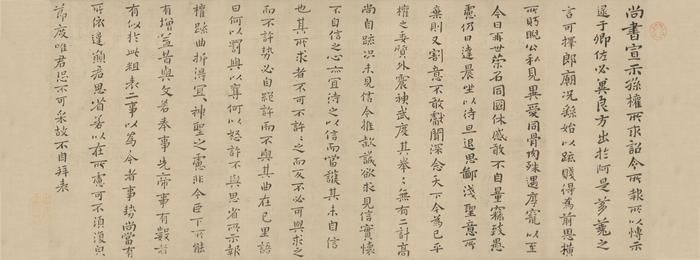 尚書宣示孫權所求詔令所報所以博示
逮于卿佐必冀良方出於阿是芻蕘之
言可擇郎廟況繇始以疏賤得為前恩橫
所盱睨公私見異愛同骨肉殊遇厚寵以至
今日再世榮名同國休慼敢不自量竊致愚
慮仍日達晨坐以待旦退思鄙淺聖意所
棄則又割意不敢獻聞深念天下今為已平
權之委質外震神武度其拳々無有二計高
尚自疏況未見信今推款誠欲求見信實懷
不自信之心亦宜待之以信而當護其未自信
也其所求者不可不許々之而反不必可與求之
而不許勢必自絕許而不與其曲在己里語
曰何以罰與以奪何以怒許不與思省所示報
權疏曲折得宜々神聖之慮非今臣下所能
有增益昔與文若奉事先帝事有數者
有似於此粗表二事以為今者事勢尚當有
所依違願君思省若以在所慮可不須復皃
節度唯君恐不可采故不自拜表